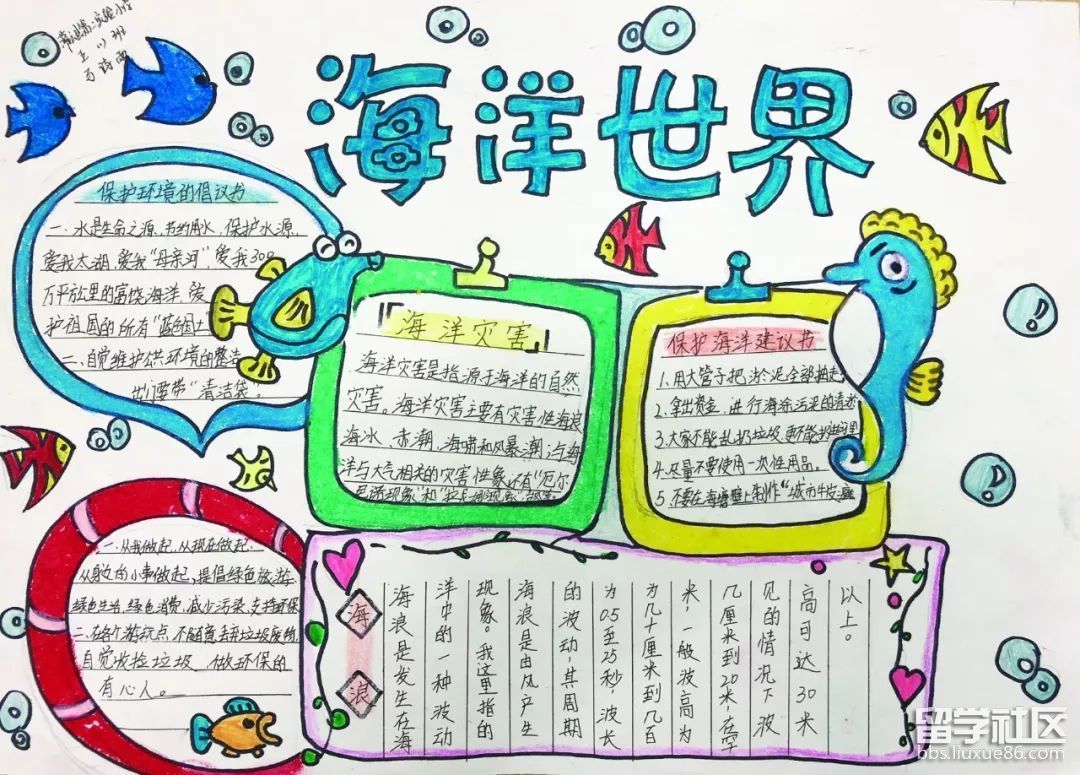 海洋世界
保护环境的倡议书
一、水是生命之源、节约用水，保护水源，
爱我太湖，爱我“母亲河”，爱我300
万平方公里的富饶海洋、爱
护祖国的所有“蓝色国土”
二、自觉维护公共环境的整洁
出门要带“清洁袋”。
「海洋灾害」
海洋灾害是指源于海洋的自然
灾害。海洋灾害主要有灾害性海浪
海冰、赤潮、海啸和风暴潮；与海
洋与大气相关的灾害性现象还有“厄尔
尼诺现象”和
保护海洋建议书
1、用大管子把淤泥全部抽走。
2、拿出资金，进行海洋污染的清
3、大家不能乱扔垃圾更不能扔
4、尽量不要使用一次性用品。
5、不要在海 上制作“城市牛皮
一、从我做起，从现在做起，
从身边的小事做起，提倡绿色旅游
绿色生活，绿色消费，减少污染，支持环保
二、在各个游玩点，不随意丢弃垃圾废物，
自觉收捡垃圾，做环保的
有心人。
海浪
海浪是发生在海
洋中的一种波动
现象。我这里指的
海浪是由风产生
的波动，其周期
为0.5至25秒，波长
为几十厘米到几百
米，一般波高为
几厘米到20米，在罕
见的情况下波
高可达30米
以上。
留学社区
bbs.liuxue86.com